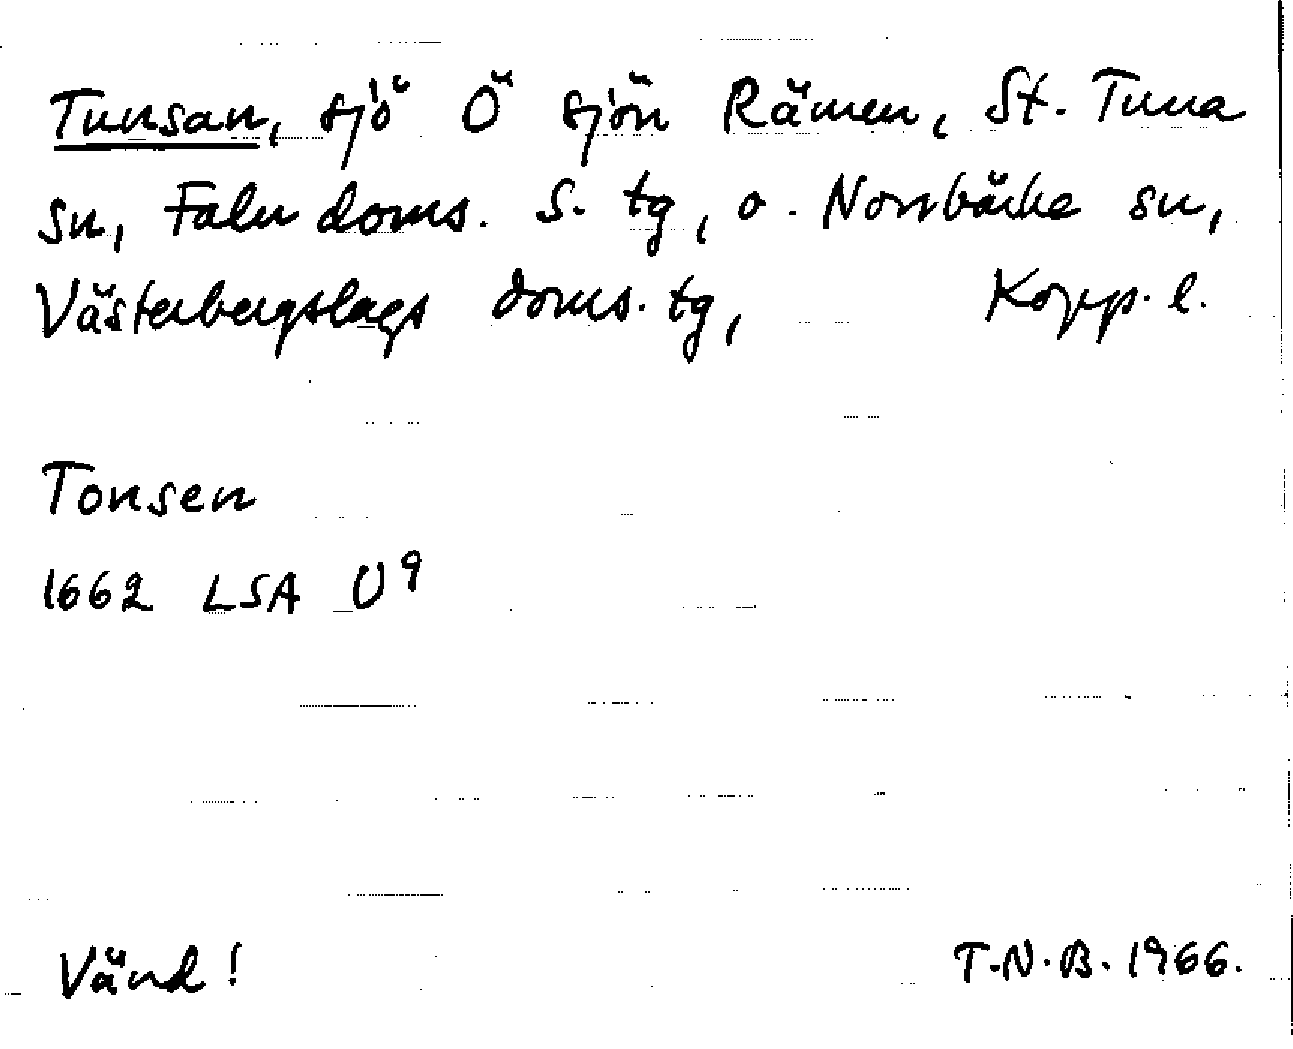 Tunsan, sjö Ö sjön Rämen, St. Tuna
sn, Falu doms. s. tg, o. Norrbärke sn,
Västerbergslags doms. tg, Kopp. l.
Tonsen
1662 LSA U⁹
Vänd!
T.N.B. 1966.